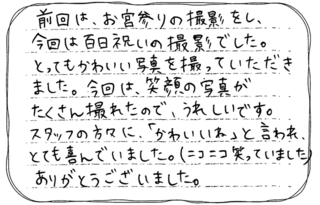 前回は、お宮参りの撮影をし、
今回は百日祝いの撮影でした。
とってもかわいい写真を撮っていただき
ました。今回は、笑顔の写真が
たくさん撮れたので、うれしいです。
スタッフの方々に、「かわいいね」と言われ、
とても喜んでいました。(ニコニコ笑っていました)
ありがとうございました。